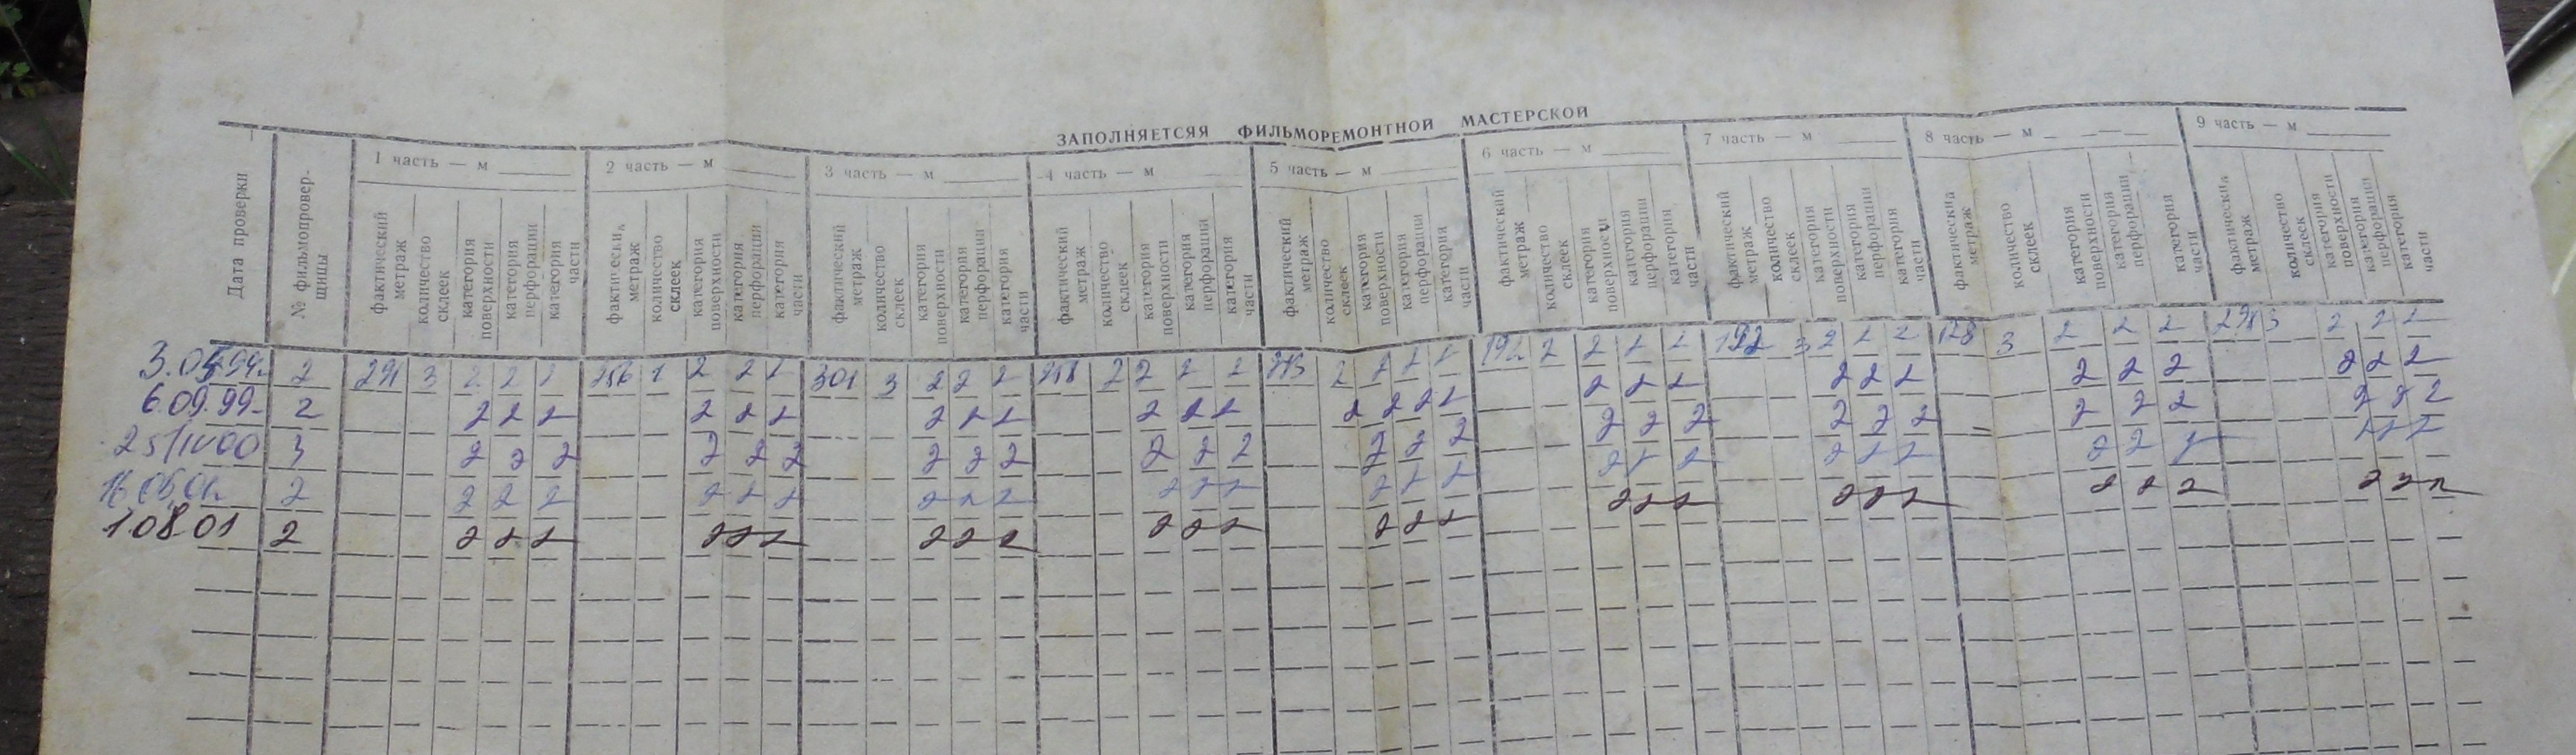 ЗАПОЛНЯЕТСЯЯ ФИЛЬМОРЕМОНТНОЙ МАСТЕРСКОЙ
Дата проверки
№ фильмопровер-
щицы
1 часть — м
2 часть — м
3 часть — м
4 часть — м
5 часть — м
6 часть — м
7 часть — м
8 часть — м
9 часть — м
фактический метраж количество склеек категория поверхности категория перфорации категория части
фактический метраж количество склеек категория поверхности категория перфорации категория части
фактический метраж количество склеек категория поверхности категория перфорации категория части
фактический метраж количество склеек категория поверхности категория перфорации категория части
фактический метраж количество склеек категория поверхности категория перфорации категория части
фактический метраж количество склеек категория поверхности категория перфорации категория части
фактический метраж количество склеек категория поверхности категория перфорации категория части
фактический метраж количество склеек категория поверхности категория перфорации категория части
фактический метраж количество склеек категория поверхности категория перфорации категория части
2 291 3 2 2 2 256 1 2 2 2 301 3 2 2 2 258 2 2 2 2 2 2 2 2 2 2 2 2 192 3 2 2 2 128 3 2 2 2 3 2 2 2
6.09.99 2 2 2 2 2 2 2 2 2 2 2 2 2 2 2 2 2 2 2 2 2 2 2 2 2 2 2 2 2
25/IV 00 3 2 2 2 2 2 2 2 2 2 2 2 2 2 2 2 2 2 2 2 2 2 2 2 2 2 2 2
2 2 2 2 2 2 2 2 2 2 2 2 2 2 2 2 2 2 2 2 2 2 2 2 2
1.08.01 2 2 2 2 2 2 2 2 2 2 2 2 2 2 2 2 2 2 2 2 2 2 2 2 2 2 2 2